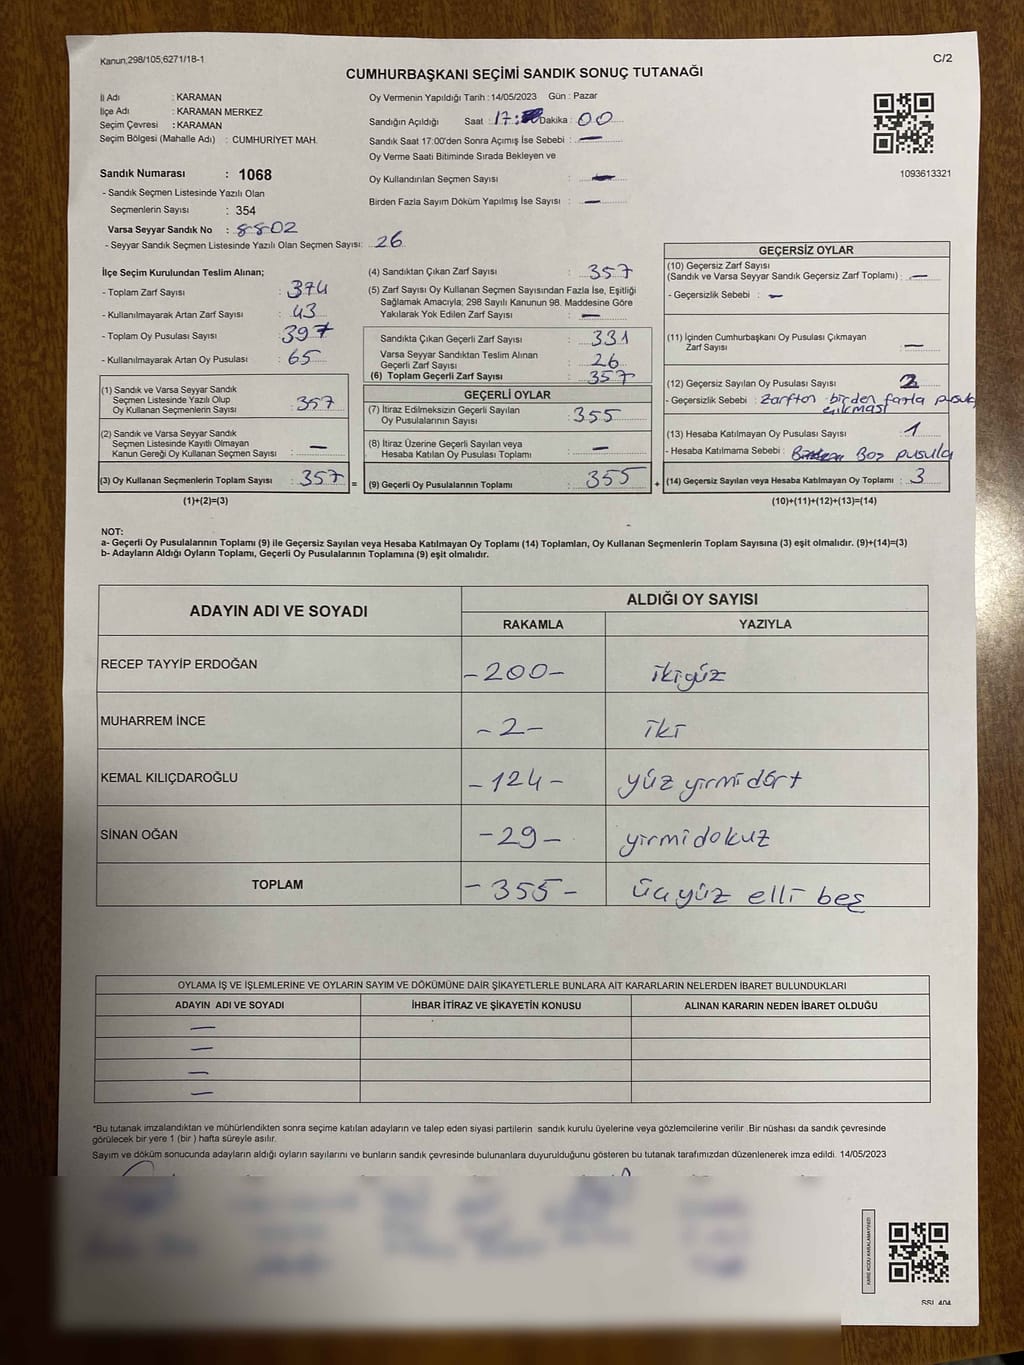 Kanun;298/105;6271/18-1
C/2
CUMHURBAŞKANI SEÇİMİ SANDIK SONUÇ TUTANAĞI
İl Adı : KARAMAN
İlçe Adı : KARAMAN MERKEZ
Seçim Çevresi : KARAMAN
Seçim Bölgesi (Mahalle Adı) : CUMHURIYET MAH.
Sandık Numarası : 1068
- Sandık Seçmen Listesinde Yazılı Olan
Seçmenlerin Sayısı : 354
Varsa Seyyar Sandık No : 8802
- Seyyar Sandık Seçmen Listesinde Yazılı Olan Seçmen Sayısı: 26
Oy Vermenin Yapıldığı Tarih : 14/05/2023 Gün : Pazar
Sandığın Açıldığı Saat : 17: Dakika : 00
Sandık Saat 17:00'den Sonra Açımış İse Sebebi : —
Oy Verme Saati Bitiminde Sırada Bekleyen ve
Oy Kullandırılan Seçmen Sayısı : —
Birden Fazla Sayım Döküm Yapılmış İse Sayısı : —
1093613321
İlçe Seçim Kurulundan Teslim Alınan;
- Toplam Zarf Sayısı :
- Kullanılmayarak Artan Zarf Sayısı : 43
- Toplam Oy Pusulası Sayısı : 397
- Kullanılmayarak Artan Oy Pusulası : 65
(1) Sandık ve Varsa Seyyar Sandık
Seçmen Listesinde Yazılı Olup
Oy Kullanan Seçmenlerin Sayısı : 357
(2) Sandık ve Varsa Seyyar Sandık
Seçmen Listesinde Kayıtlı Olmayan
Kanun Gereği Oy Kullanan Seçmen Sayısı : —
(3) Oy Kullanan Seçmenlerin Toplam Sayısı : 357 =
(1)+(2)=(3)
(4) Sandıktan Çıkan Zarf Sayısı : 357
(5) Zarf Sayısı Oy Kullanan Seçmen Sayısından Fazla İse, Eşitliği
Sağlamak Amacıyla; 298 Sayılı Kanunun 98. Maddesine Göre
Yakılarak Yok Edilen Zarf Sayısı : —
Sandıkta Çıkan Geçerli Zarf Sayısı : 331
Varsa Seyyar Sandıktan Teslim Alınan
Geçerli Zarf Sayısı : 26
(6) Toplam Geçerli Zarf Sayısı : 357
GEÇERLİ OYLAR
(7) İtiraz Edilmeksizin Geçerli Sayılan
Oy Pusulalarının Sayısı : 355
(8) İtiraz Üzerine Geçerli Sayılan veya
Hesaba Katılan Oy Pusulası Toplamı : —
(9) Geçerli Oy Pusulalarının Toplamı : 355 +
GEÇERSİZ OYLAR
(10) Geçersiz Zarf Sayısı
(Sandık ve Varsa Seyyar Sandık Geçersiz Zarf Toplamı) : —
- Geçersizlik Sebebi : —
(11) İçinden Cumhurbaşkanı Oy Pusulası Çıkmayan
Zarf Sayısı : —
(12) Geçersiz Sayılan Oy Pusulası Sayısı : 2
- Geçersizlik Sebebi : Zarftan birden fazla pusula
çıkması
(13) Hesaba Katılmayan Oy Pusulası Sayısı : 1
- Hesaba Katılmama Sebebi : Boş pusula
(14) Geçersiz Sayılan veya Hesaba Katılmayan Oy Toplamı : 3
(10)+(11)+(12)+(13)=(14)
NOT:
a- Geçerli Oy Pusulalarının Toplamı (9) ile Geçersiz Sayılan veya Hesaba Katılmayan Oy Toplamı (14) Toplamları, Oy Kullanan Seçmenlerin Toplam Sayısına (3) eşit olmalıdır. (9)+(14)=(3)
b- Adayların Aldığı Oyların Toplamı, Geçerli Oy Pusulalarının Toplamına (9) eşit olmalıdır.
ADAYIN ADI VE SOYADI ALDIĞI OY SAYISI
RAKAMLA YAZIYLA
RECEP TAYYİP ERDOĞAN -200- ikiyüz
MUHARREM İNCE -2- iki
KEMAL KILIÇDAROĞLU -124- yüz yirmi dört
SİNAN OĞAN -29- yirmidokuz
TOPLAM -355- üçyüz elli beş
OYLAMA İŞ VE İŞLEMLERİNE VE OYLARIN SAYIM VE DÖKÜMÜNE DAİR ŞİKAYETLERLE BUNLARA AİT KARARLARIN NELERDEN İBARET BULUNDUKLARI
ADAYIN ADI VE SOYADI İHBAR İTİRAZ VE ŞİKAYETİN KONUSU ALINAN KARARIN NEDEN İBARET OLDUĞU
—
—
—
—
*Bu tutanak imzalandıktan ve mühürlendikten sonra seçime katılan adayların ve talep eden siyasi partilerin sandık kurulu üyelerine veya gözlemcilerine verilir .Bir nüshası da sandık çevresinde
görülecek bir yere 1 (bir ) hafta süreyle asılır.
Sayım ve döküm sonucunda adayların aldığı oyların sayılarını ve bunların sandık çevresinde bulunanlara duyurulduğunu gösteren bu tutanak tarafımızdan düzenlenerek imza edildi. 14/05/2023
KARE KODU KARALAMAYINIZ!